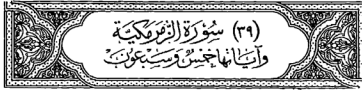 (٣٩) سُوْرَةُ الزُّمَرِ مَكِّيَّة
وَآيَاتُهَا خَمْسٌ وَسَبْعُوْنَ